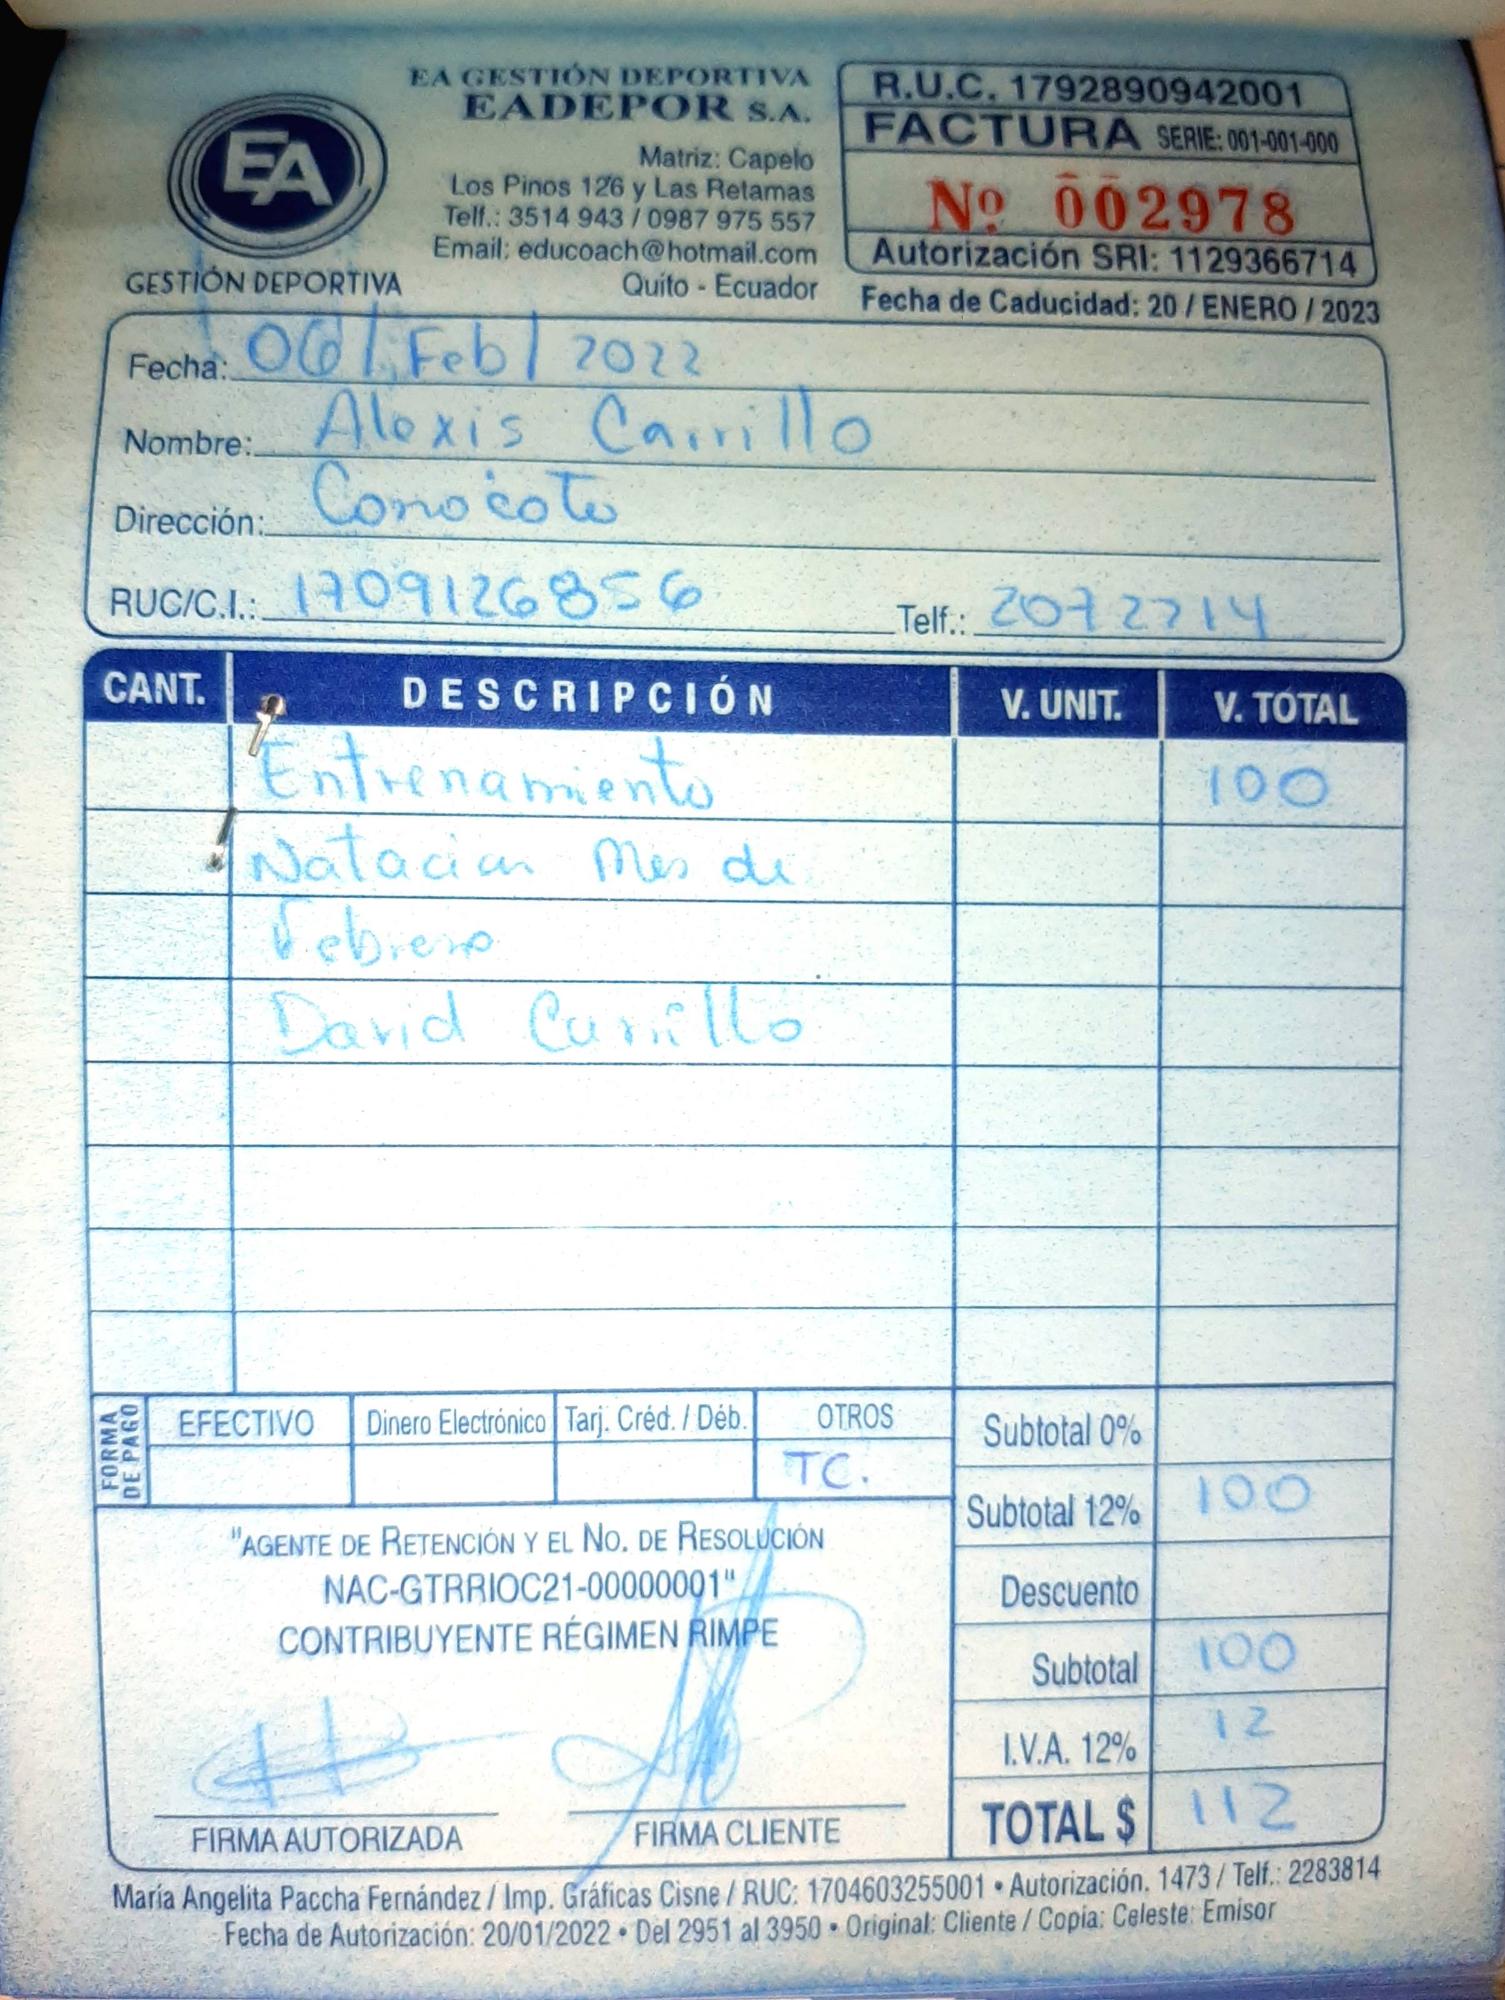 EA GESTIÓN DEPORTIVA
EADEPOR S.A.
EA
GESTIÓN DEPORTIVA
Matriz: Capelo
Los Pinos 126 y Las Retamas
Telf.: 3514 943 / 0987 975 557
Email: educoach@hotmail.com
Quito - Ecuador
R.U.C. 1792890942001
FACTURA SERIE: 001-001-000
Nº 002978
Autorización SRI: 1129366714
Fecha de Caducidad: 20 / ENERO / 2023
Fecha: 06 / Feb / 2022
Nombre: Alexis Carrillo
Dirección: Conocoto
RUC/C.I.: 1709126856 Telf.: 2072214
CANT. DESCRIPCIÓN V. UNIT. V. TOTAL
Entrenamiento 100
Natacion Mes de
Febrero
David Carrillo
FORMA DE PAGO
EFECTIVO Dinero Electrónico Tarj. Créd. / Déb. OTROS
TC.
Subtotal 0%
Subtotal 12% 100
Descuento
Subtotal 100
I.V.A. 12% 12
TOTAL $ 112
"AGENTE DE RETENCIÓN Y EL NO. DE RESOLUCIÓN
NAC-GTRRIOC21-00000001"
CONTRIBUYENTE RÉGIMEN RIMPE
FIRMA AUTORIZADA FIRMA CLIENTE
María Angelita Paccha Fernández / Imp. Gráficas Cisne / RUC: 1704603255001 • Autorización. 1473 / Telf.: 2283814
Fecha de Autorización: 20/01/2022 • Del 2951 al 3950 • Original: Cliente / Copia: Celeste: Emisor